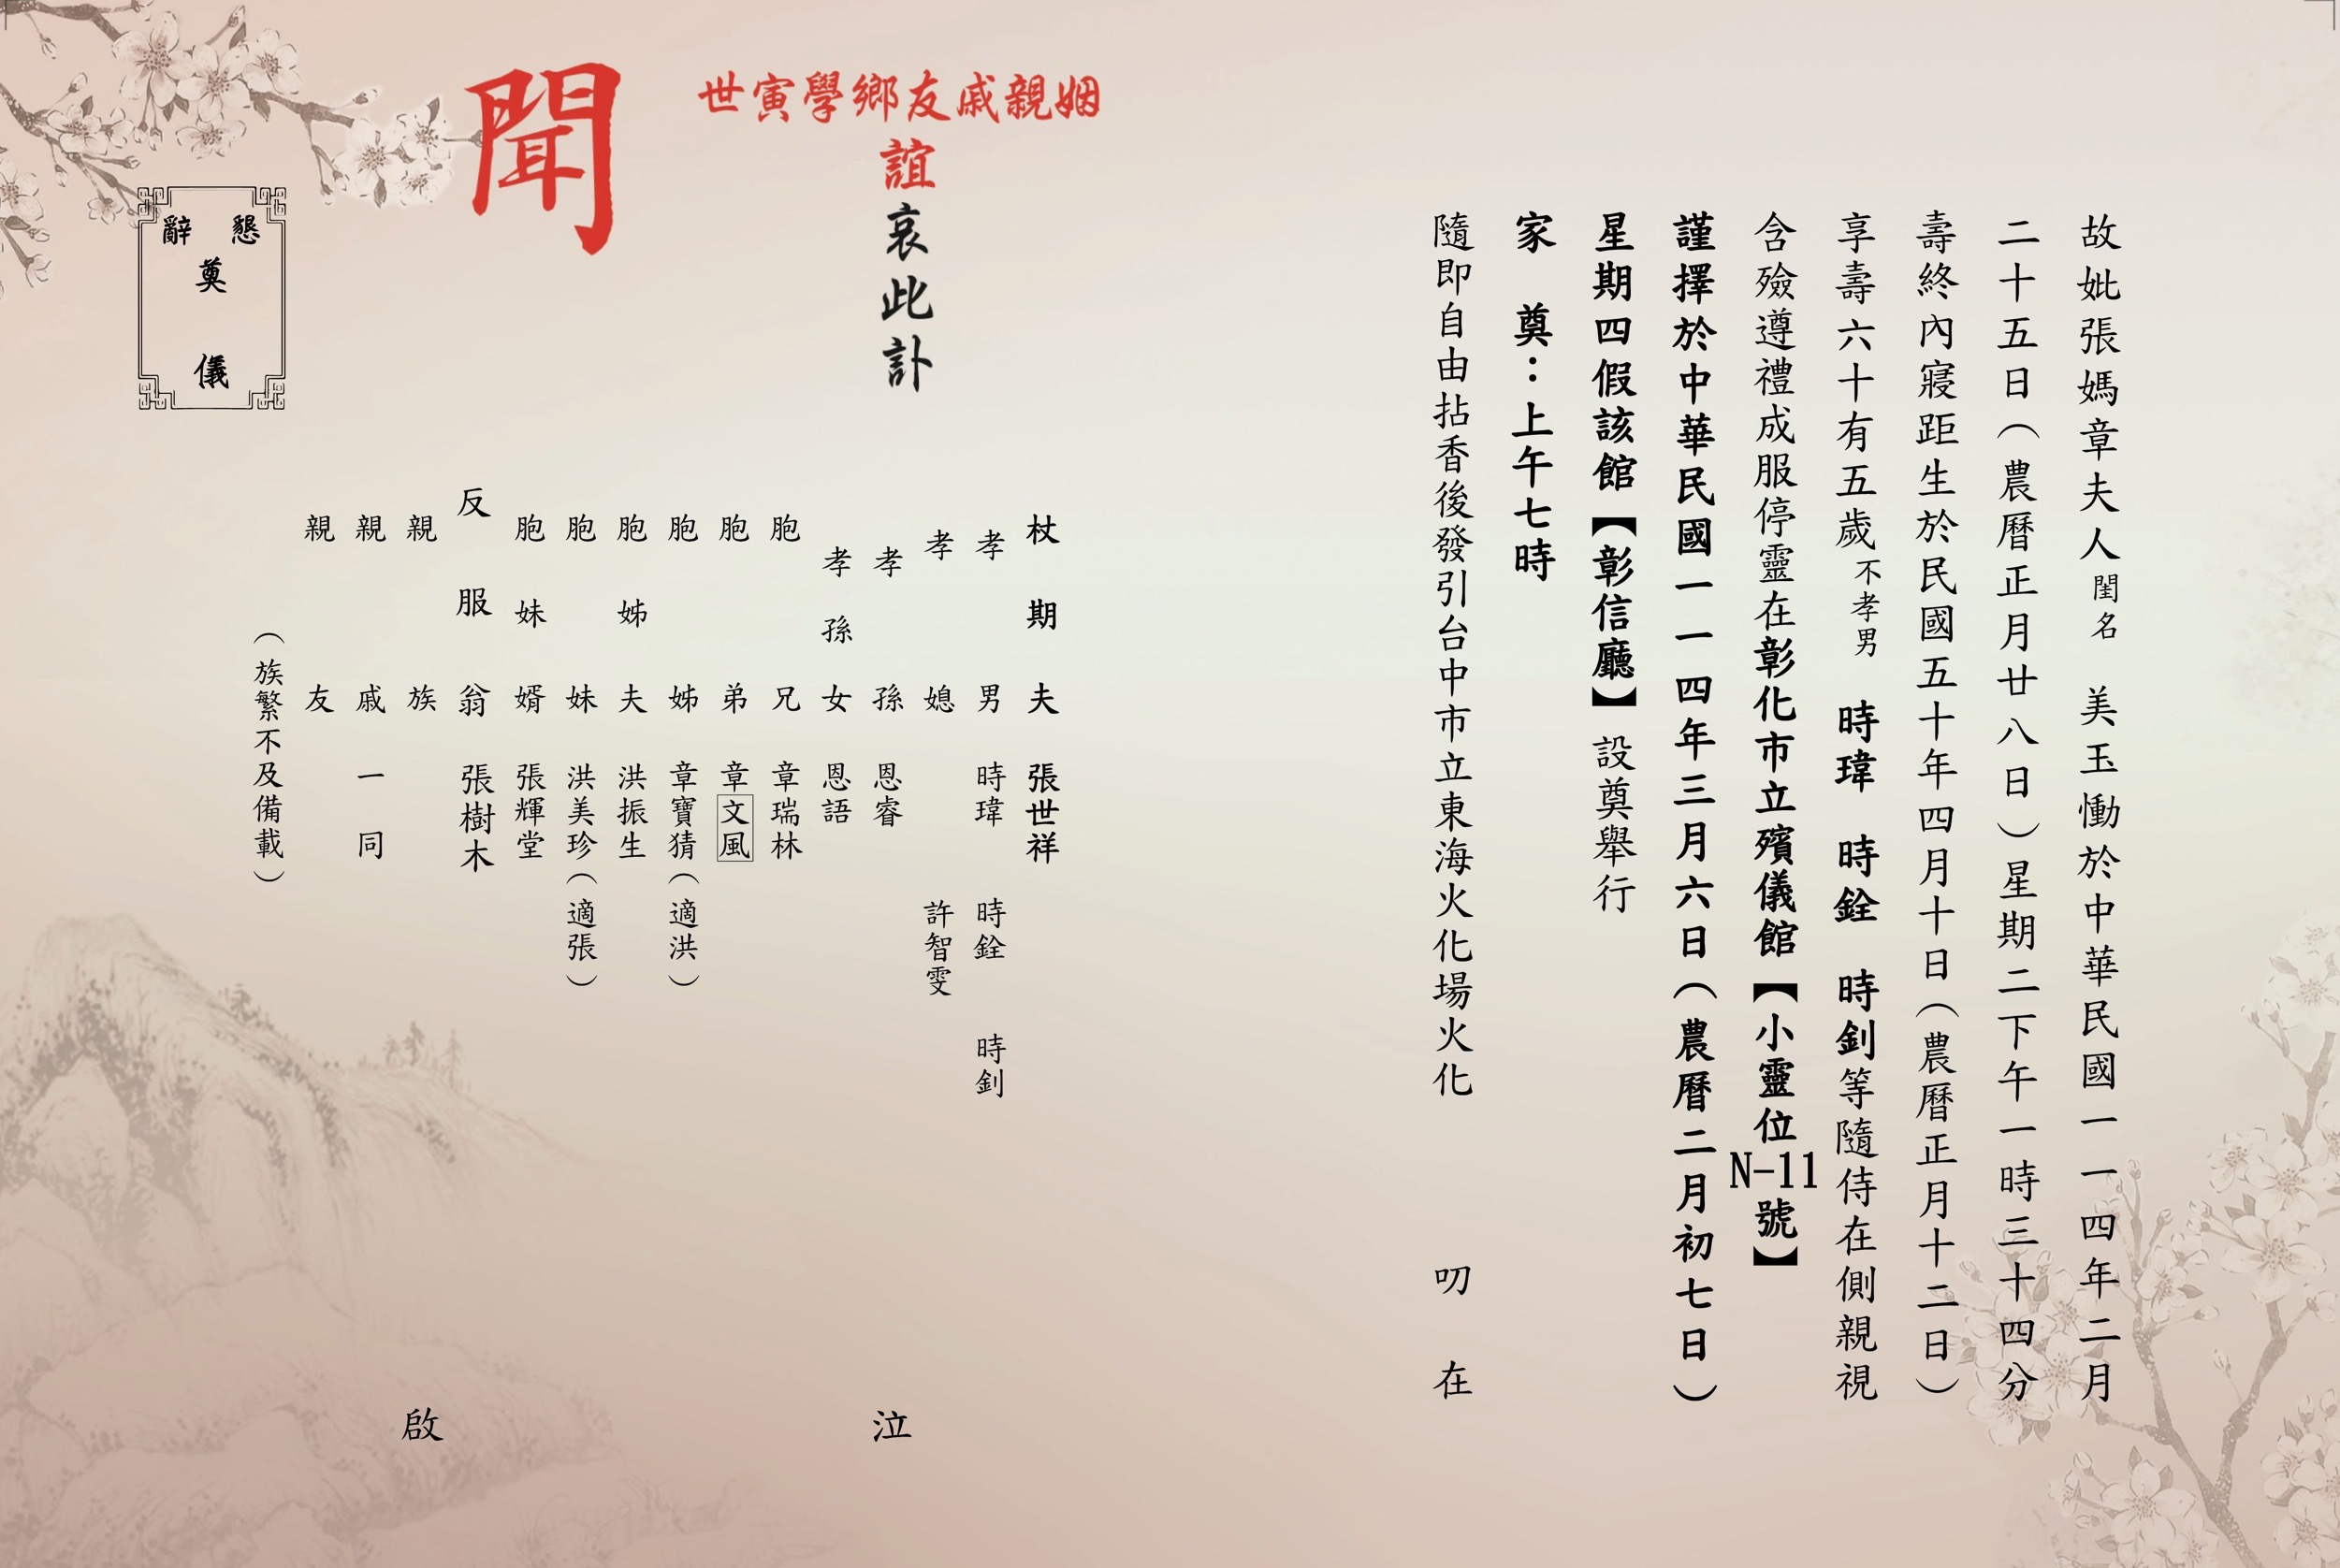 故妣張媽章夫人閨名　美玉慟於中華民國一一四年二月
二十五日（農曆正月廿八日）星期二下午一時三十四分
壽終內寢距生於民國五十年四月十日（農曆正月十二日）
享壽六十有五歲不孝男　時瑋　時銓　時釗等隨侍在側親視
含殮遵禮成服停靈在彰化市立殯儀館【小靈位N-11號】
謹擇於中華民國一一四年三月六日（農曆二月初七日）
星期四假該館【彰信廳】設奠舉行
家　奠：上午七時
隨即自由拈香後發引台中市立東海火化場火化　叨　在
姻親戚友鄉學寅世
誼哀此訃
聞
杖期夫　張世祥
孝男　時瑋　時銓　時釗
孝媳　許智雯
孝孫　恩睿
孝孫女　恩語
胞兄　章瑞林
胞弟　章文風
胞姊　章寶猜（適洪）
胞姊夫　洪振生
胞妹　洪美珍（適張）
胞妹婿　張輝堂
反服翁　張樹木
親族
親戚　一同
親友
（族繁不及備載）
泣
啟
懇辭
奠儀